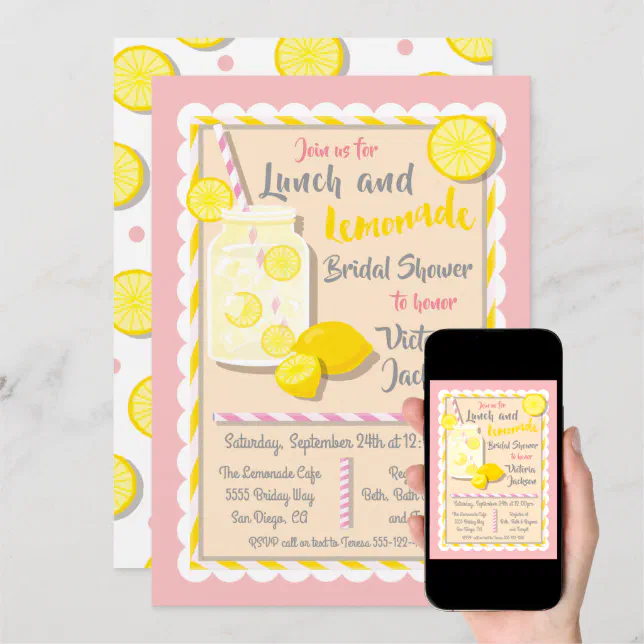 Join us for
Lunch and
Lemonade
Bridal Shower
to honor
Victo
Jack
Saturday, September 24th at 12:
The Lemonade Cafe
5555 Briday Way
San Diego, CA
Re
Beth, Bath
and
RSVP call or text to Teresa 555-122-
Join us for
Lunch and
Lemonade
Bridal Shower
to honor
Victoria
Jackson
Saturday, September 24th at 12:00pm
The Lemonade Cafe
5555 Briday Way
San Diego, CA
Registry at
Beth, Bath & Beyond
and Target
RSVP call or text to Teresa